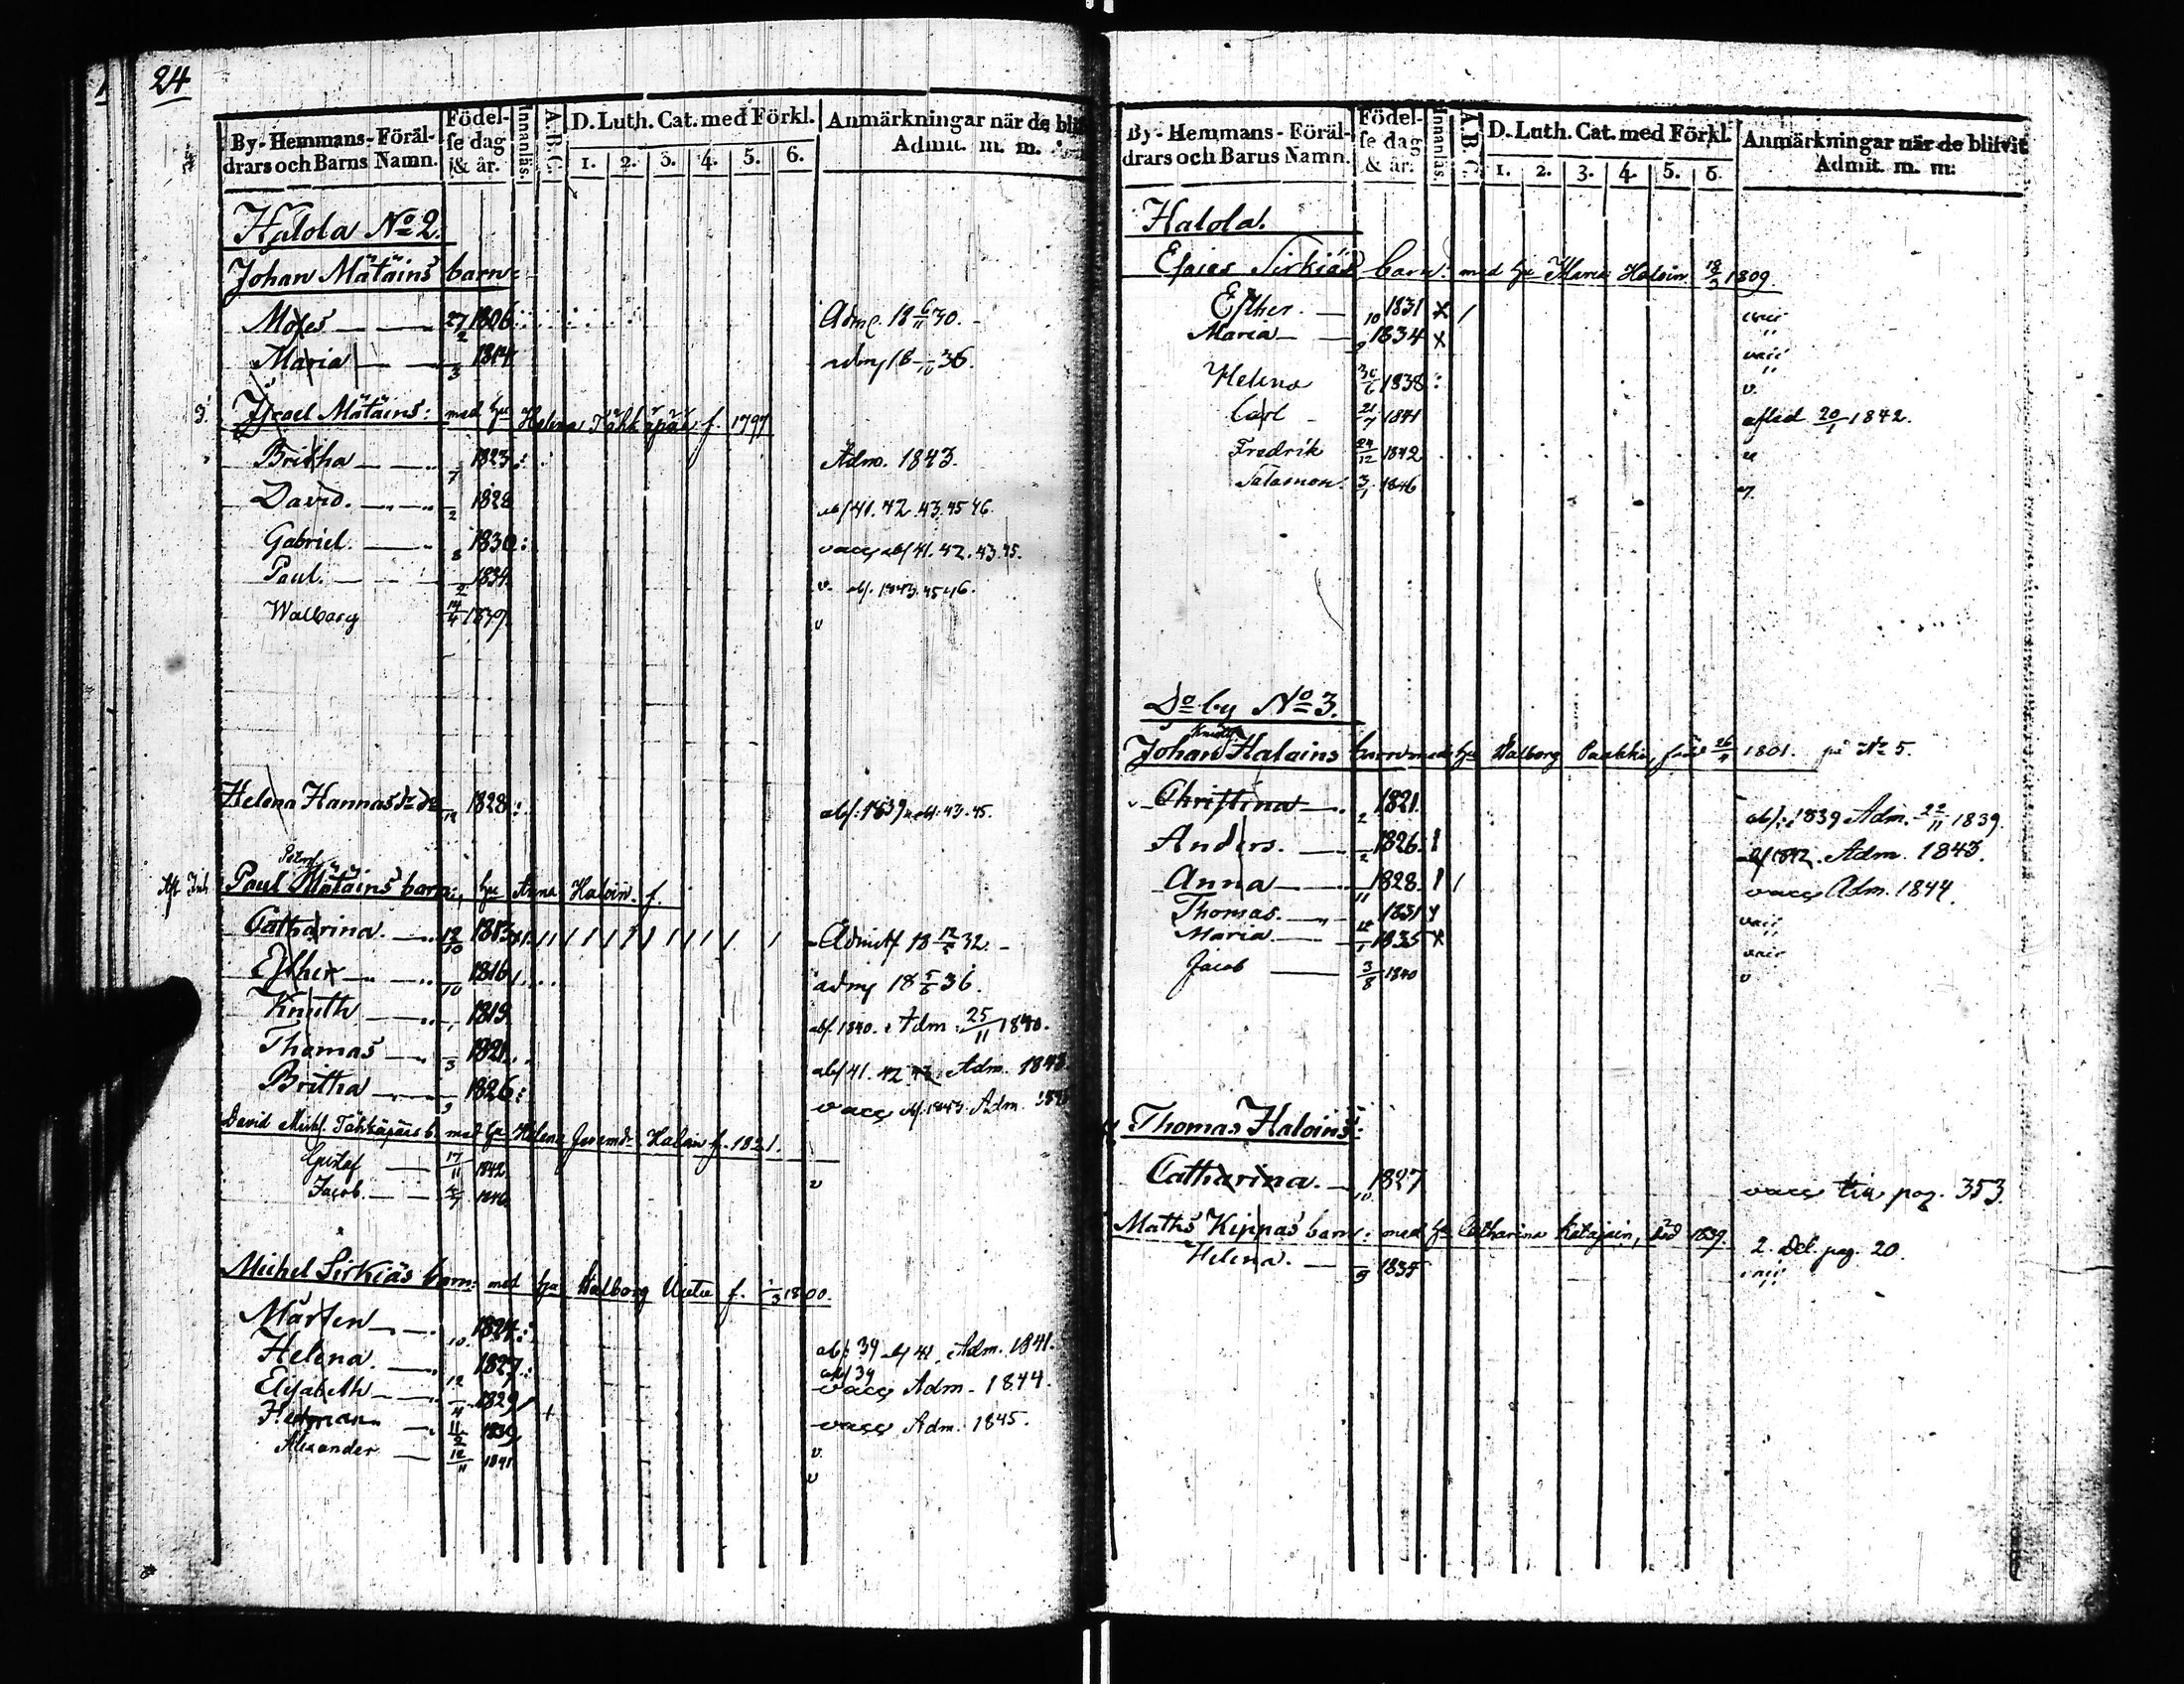 24
By- Hemmans- Föräl-
drars och Barns Namn.
Födel-
se dag
& år.
Innanläs.
A.B.C.
D. Luth. Cat. med Förkl.
1. 2. 3. 4. 5. 6.
Anmärkningar när de bli
Admit. m. m.
Halola No 2.
Johan Mätäins barn:
Moses 27/2 1806 18 6/11 30.
Maria 3 1814 18 36.
Israel Mätäins: med hu Helena f. 1797
Britha 7 1823 Adm. 1843.
David. 2 1828 41. 42. 43. 45 46.
Gabriel. 8 1830 vacc abs 41. 42. 43. 45.
Paul. 2 1834 v. abs. 1843. 45 46.
Walborg 14/4 1839 v
Helena Hannas 1828 abs: 1839 43. 45.
Paul Mätäins barn, hu Anna Haloin f.
Catharina. 12/10 1813 18 12/5 32.
Esther 10 1816 18 5/6 36.
Knuth 1819 abs. 1840. Adm. 25/11 1840.
Thomas 3 1821 abs 41. 42 Adm. 1843
Britha 9 1826 vacc abs. 1843 Adm.
David Mich. b. med hu Helena Haloin f. 1821.
Gustaf 17/11 1842
Jacob 7 1846 v
Michel Sirkiäs barn: med hu Walborg f. 1800.
Mårten 10 1824 abs: 39 abs 41. Adm. 1841.
Helena. 12 1827 abs 39 vacc Adm. 1844.
Elisabeth 4 1829 vacc Adm. 1845.
Hedman 11/2 1839 v.
Alexander 12/11 1841 v
By- Hemmans- Föräl-
drars och Barns Namn.
Födel-
se dag
& år.
Innanläs.
A.B.C.
D. Luth. Cat. med Förkl.
1. 2. 3. 4. 5. 6.
Anmärkningar när de blifvit
Admit. m. m:
Halola.
Esaias Sirkiäs barn: med hu Maria Haloin 18/3 1809.
Esther. 10 1831 x / vacc
Maria 9 1834 x vacc
Helena 30/6 1838 v.
Carl 21/7 1841 afled 20/1 1842.
Fredrik 24/12 1842 v
Salamon. 3/1 1846 v.
Do by No 3.
Johan Haloins barn med hu Walborg Paakki, född 26/4 1801. på No 5.
Christina 2 1821. abs: 1839 Adm. 22/11 1839.
Anders. 2 1826. abs 1842. Adm. 1843.
Anna 11 1828. vacc Adm. 1844.
Thomas. 1831 vacc
Maria 12/1 1835 x vacc
Jacob 3/8 1840 v
Thomas Haloins:
Catharina. 10 1827 vacc pag. 353.
Maths Kippas barn: med hu Catharina Katajain, 1839. 2. Del. pag. 20.
Helena. 9 1835 vacc